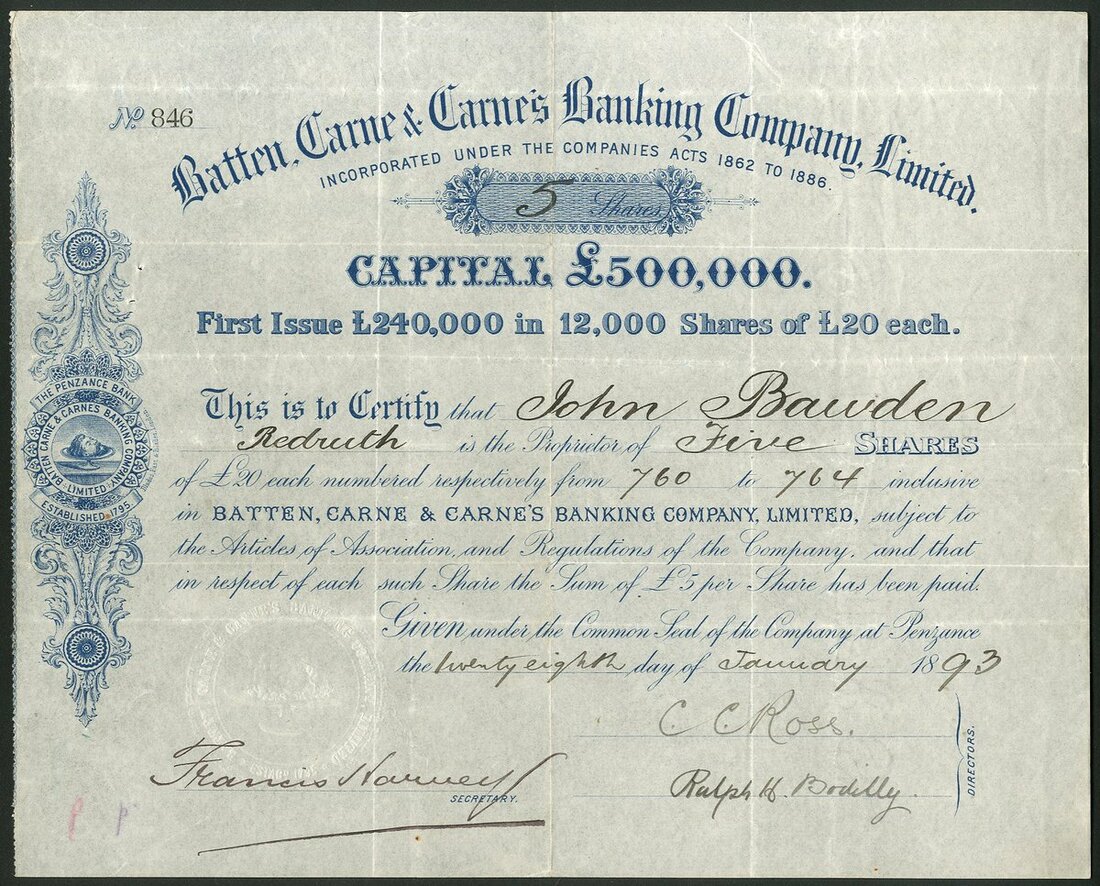 No 846
Batten, Carne & Carne's Banking Company, Limited.
INCORPORATED UNDER THE COMPANIES ACTS 1862 TO 1886.
5 Shares
CAPITAL £500,000.
First Issue £240,000 in 12,000 Shares of £20 each.
This is to Certify that John Bawden
Redruth is the Proprietor of Five SHARES
of £20 each numbered respectively from 760 to 764 inclusive
in BATTEN, CARNE & CARNE'S BANKING COMPANY, LIMITED, subject to
the Articles of Association, and Regulations of the Company, and that
in respect of each such Share the Sum of £5 per Share has been paid.
Given under the Common Seal of the Company, at Penzance
the twenty eighth day of January 1893
C C Ross.
Ralph H. Bodilly.
DIRECTORS.
Francis Harvey
SECRETARY.
THE PENZANCE BANK
BATTEN CARNE & CARNES BANKING COMPANY
LIMITED
ESTABLISHED 1795